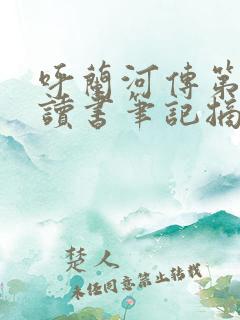 呼蘭河傳第
讀書筆記摘
楚人
未经同意禁止转载